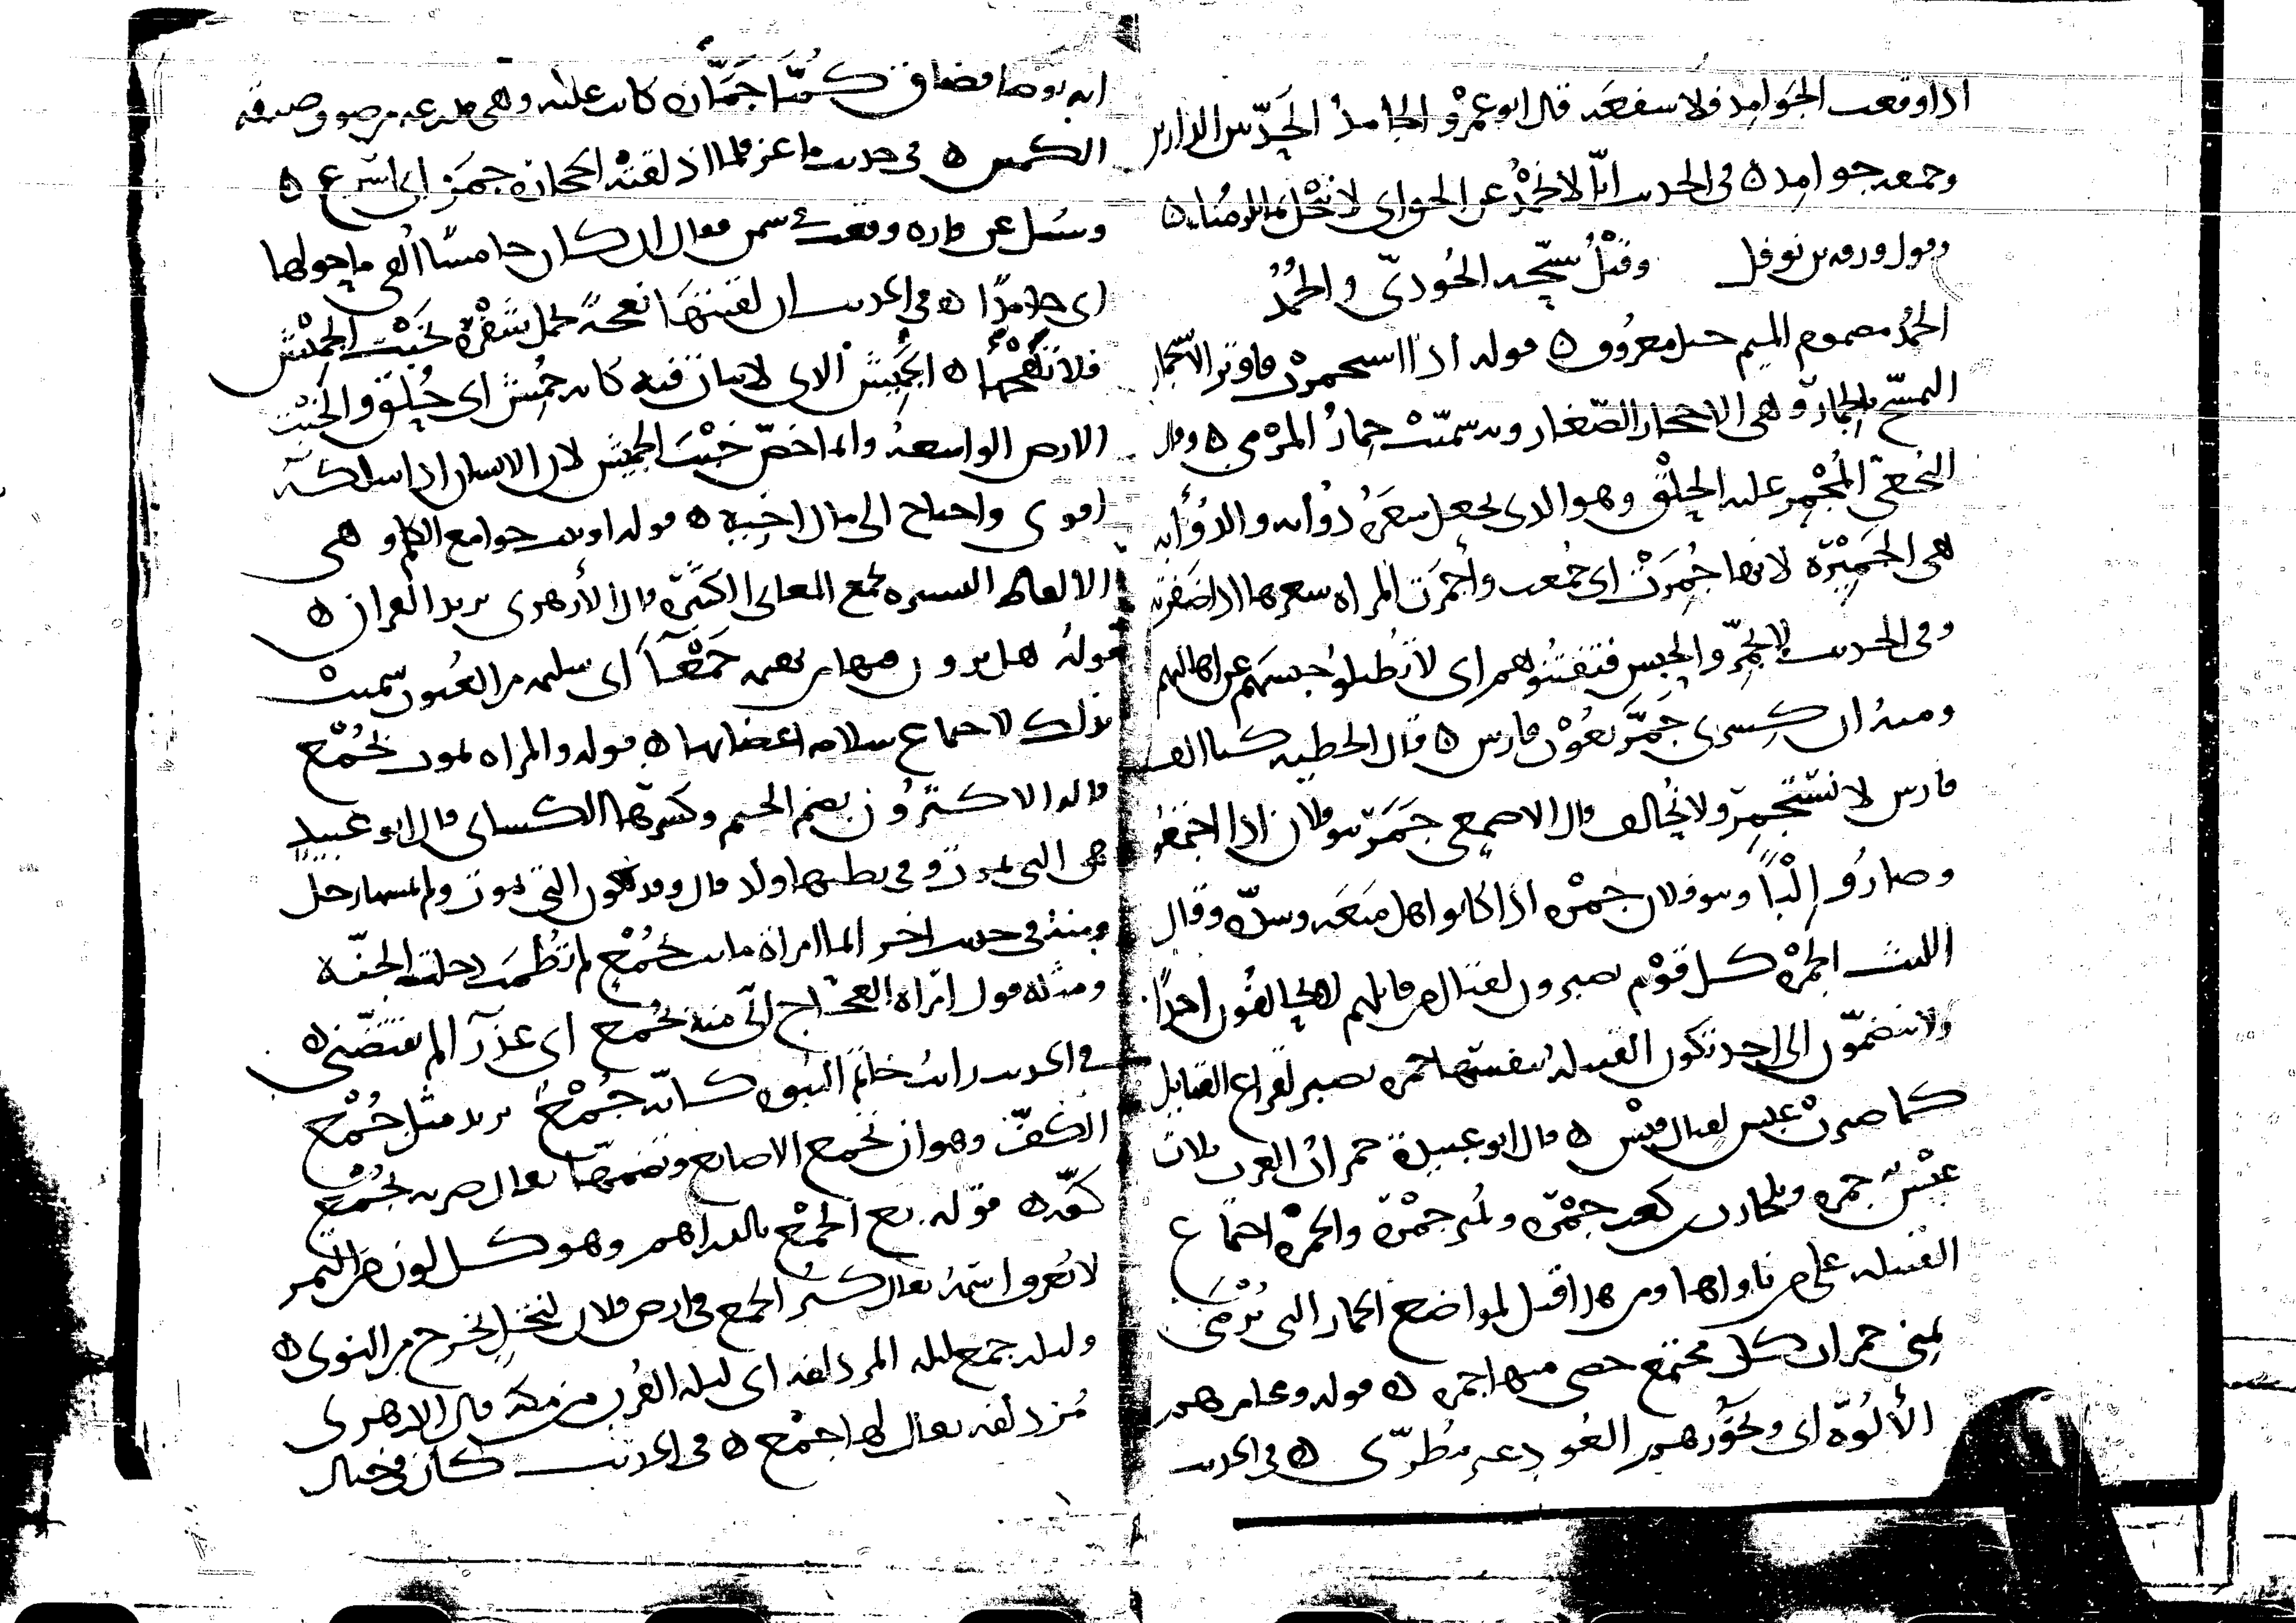 اذا وقعت الجوامد فلا شفعة قال ابو عمرو الجامد الحدّ بين الدارين
وجمعه جوامد ه في الحديث انّا لا نجمد عن الحق اي لا نبخل بما يلزمنا ه
وقول ورقه بن نوفل وقبلُ سبّحه الجُوديّ والجُمُد
الجُمُد مضموم الميم جبل معروف ه قوله اذا استجمرت فاوتر الاستجمار
التمسّح بالجمار وهي الاحجار الصّغار وبه سمّيت جمارُ المرمى ه وقال
النخعيّ المُجْمِر عليه الحلق وهو الذي يجعل شعره ذؤابه والذؤابه
هي الجَمِيْرة لانها جُمِرَتْ اي جُمعت وأجمرَت المراه شعرها اذا ضفرته
وفي الحديث لا تجمّروا الجيش فتفتنوهم اي لا تُطيلوا حبسهم عن اهاليهم
ومنه ان كسرى جَمَّرَ بعُوث فارس ه قال الحطيه كنا الف
فارس لا نستجمر ولا نُحالف قال الاصمعي جَمَرَ بنو فلان اذا اجتمعُوا
وصارُوا إلْبًا وبنو فلان جمرْه اذا كانوا اهل منَعَه وشدّه وقال
الليث الجمرْه كل قوْم يصبرون لقتال من قاتلهم لا يحالفُون احدًا
ولا ينضمّون الى احد تكون القبيله بنفسها جمره تصبر لقراع القبايل
كما صبرتْ عبس لقبايل قيْس ه قال ابو عبيدة جمرات العرب ثلاث
عبْس جمره وبلحارث بن كعب جمْرة ونُمير جمْرة والجمرْه اجتماع
القبيله على من ناواها ومن هذا قيل لمواضع الجمار التي تُرْمَى
بمنى جمرات كل مجتمع حصى منها جمره ه قوله ومجامرهم
الألُوّه اي وبخورهم العُود غير مُطرّى ه في الحديث
انه توضا فضاق كُمّا جُمّازه كانت عليه وهي مدرعه من صوف ضيقه
الكمين ه في حديث ماعز فلما اذلقتْه الحجاره جمَز اي اسرع ه
وسُئل عن فاره وقعت في سمن فقال ان كان جامسًا اُلقي ما حولها
اي جامدًا ه في الحديث ان لقيتَهَا نعجةً تحمل شَفْرة بخَبْت الجمِيْش
فلا تَهِجْهَا ه الجَمِيش الذي لا نبات فيه كانه جُمِش اي حُلِق والخَبْت
الارض الواسعهُ وانما خصّ خَبْتَ الجميش لان الانسان اذا سلكه
اقوى واحتاج الى مال اخيه ه قوله اوتيت جوامع الكلم وهي
الالفاظ اليسيره تجمع المعاني الكثيرة قال الأزهري يريد القران ه
قولهُ هل يرون فيها من بهيمه جَمْعآء اي سليمه من العُيوب سميتْ
بذلك لاجتماع سلامه اعضايها ه قوله والمراه تموت بجُمْع
قاله الاكثرون بضم الجيم وكسرها الكساي قال ابو عبيد
هي التي تموت وفي بطنها ولد قال وقد تكون التي تموت ولم يمسها رجل
ومنه في حديث اخر ايما امراة ماتت بجُمْع لم تُطمَث دخلت الجنّة
ومثله قول امرَاه العجّاج انّي منه بجُمْع اي عذرآ لم يفتضّني ه
في الحديث رايت خاتم النبوه كانّه جُمْعٌ يريد مثل جُمْع
الكفّ وهو ان تجمع الاصابع وتضمّها يقال ضربه بجُمْع
كفّه ه قوله بع الجمْع بالدراهم وهو كل لون من التمر
لا يُعرف اسمُه يقال كثُر الجمع في ارض فلان لنخلٍ يخرج من النوى ه
وليله جمع ليله المزدلفه اي ليله القُرب من مكّه قال الازهري
مُزدلفه يقال لها جمْع ه في الحديث كان في جبال